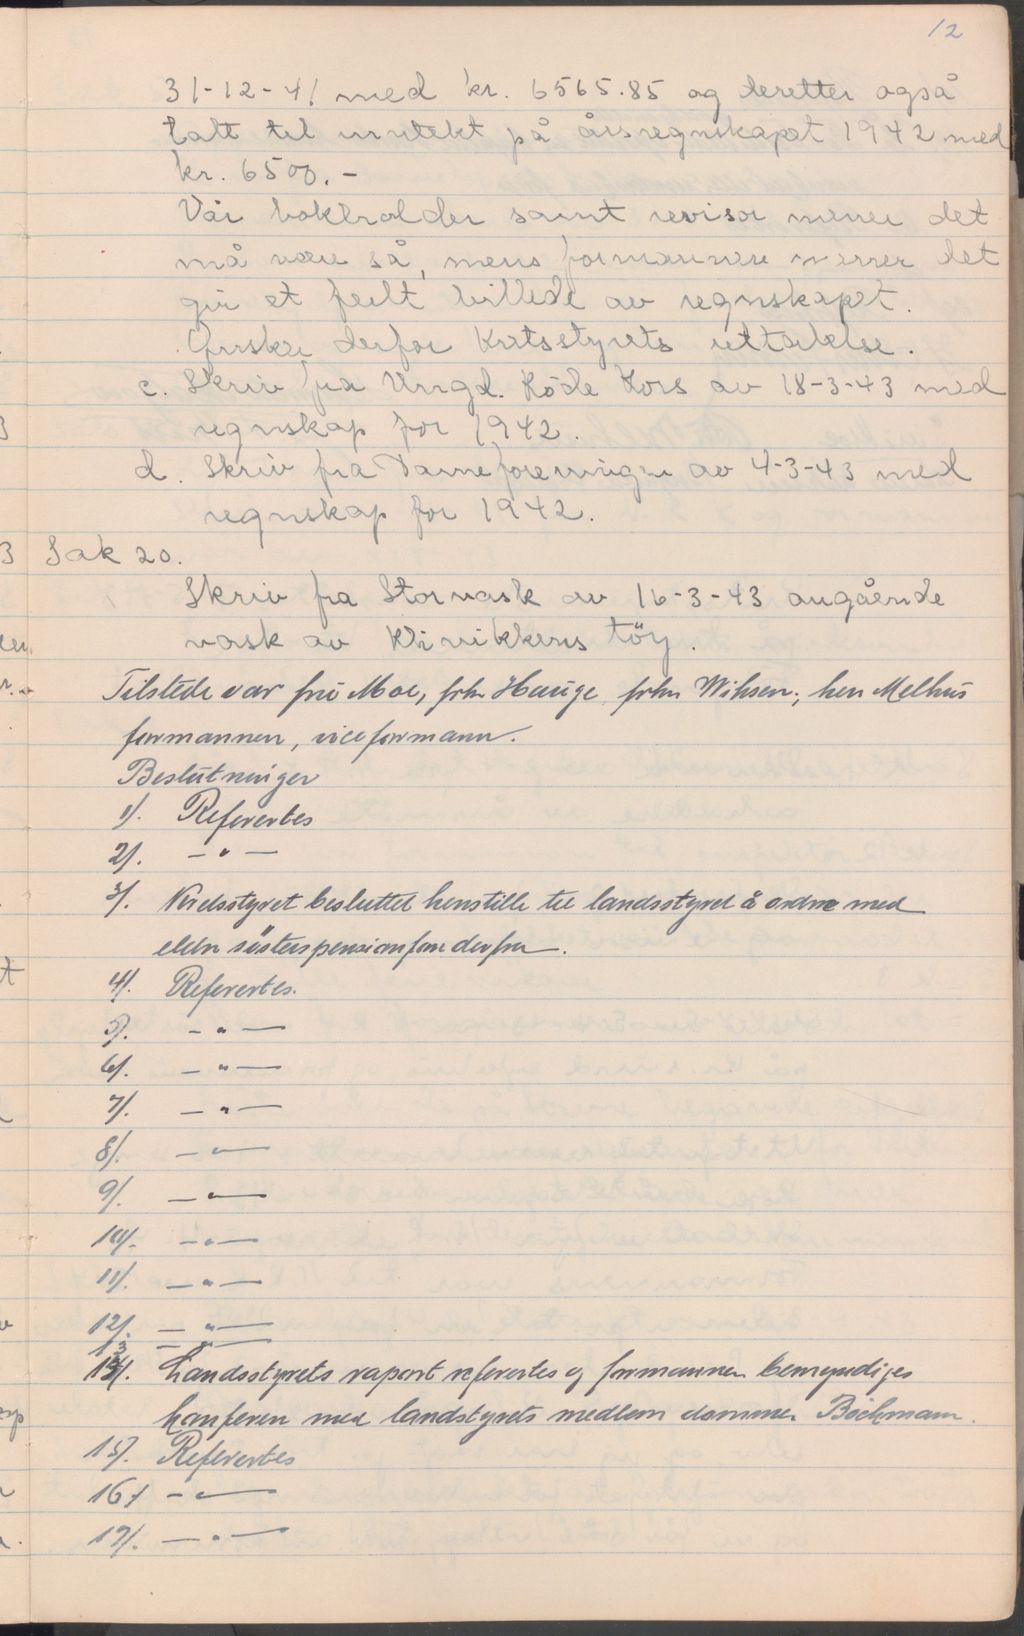 12
31-12-41 med kr. 6565.85 og deretter også
tatt til inntekt på årsregnskapet 1942 med
kr. 6500.-
Vår bokholder samt revisor mener det
må være så, mens formannen mener det
gir et feilt billede av regnskapet.
Ønsker derfor Kretsstyrets uttalelse.
c. Skriv fra Ungd. Röde Kors av 18-3-43 med
regnskap for 1942.
d. Skriv fra Dameforeningen av 4-3-43 med
regnskap for 1942.
Sak 20.
Skriv fra Storvask av 16-3-43 angående
vask av Klinikkens töy.
Tilstede var frü Moe, frkn Hauge, frkn Wiksen; herr Melhüs
formannen, viceformann.
Beslütninger
1/. Referertes
2/. — " —
3/. Kredsstyret besluttet henstille til landsstyret å ordne med
eldre søsters pensjon
4/. Referertes.
5/. — " —
6/. — " —
7/. — " —
8/. — " —
9/. — " —
10/. — " —
11/. — " —
12/. — " —
13 — " —
14/. Landsstyrets raport refertes og formannen bemyndiges
konferere med landstyrets medlem dommer Bochmann.
15/. Referertes
16/ — " —
17/. — " —